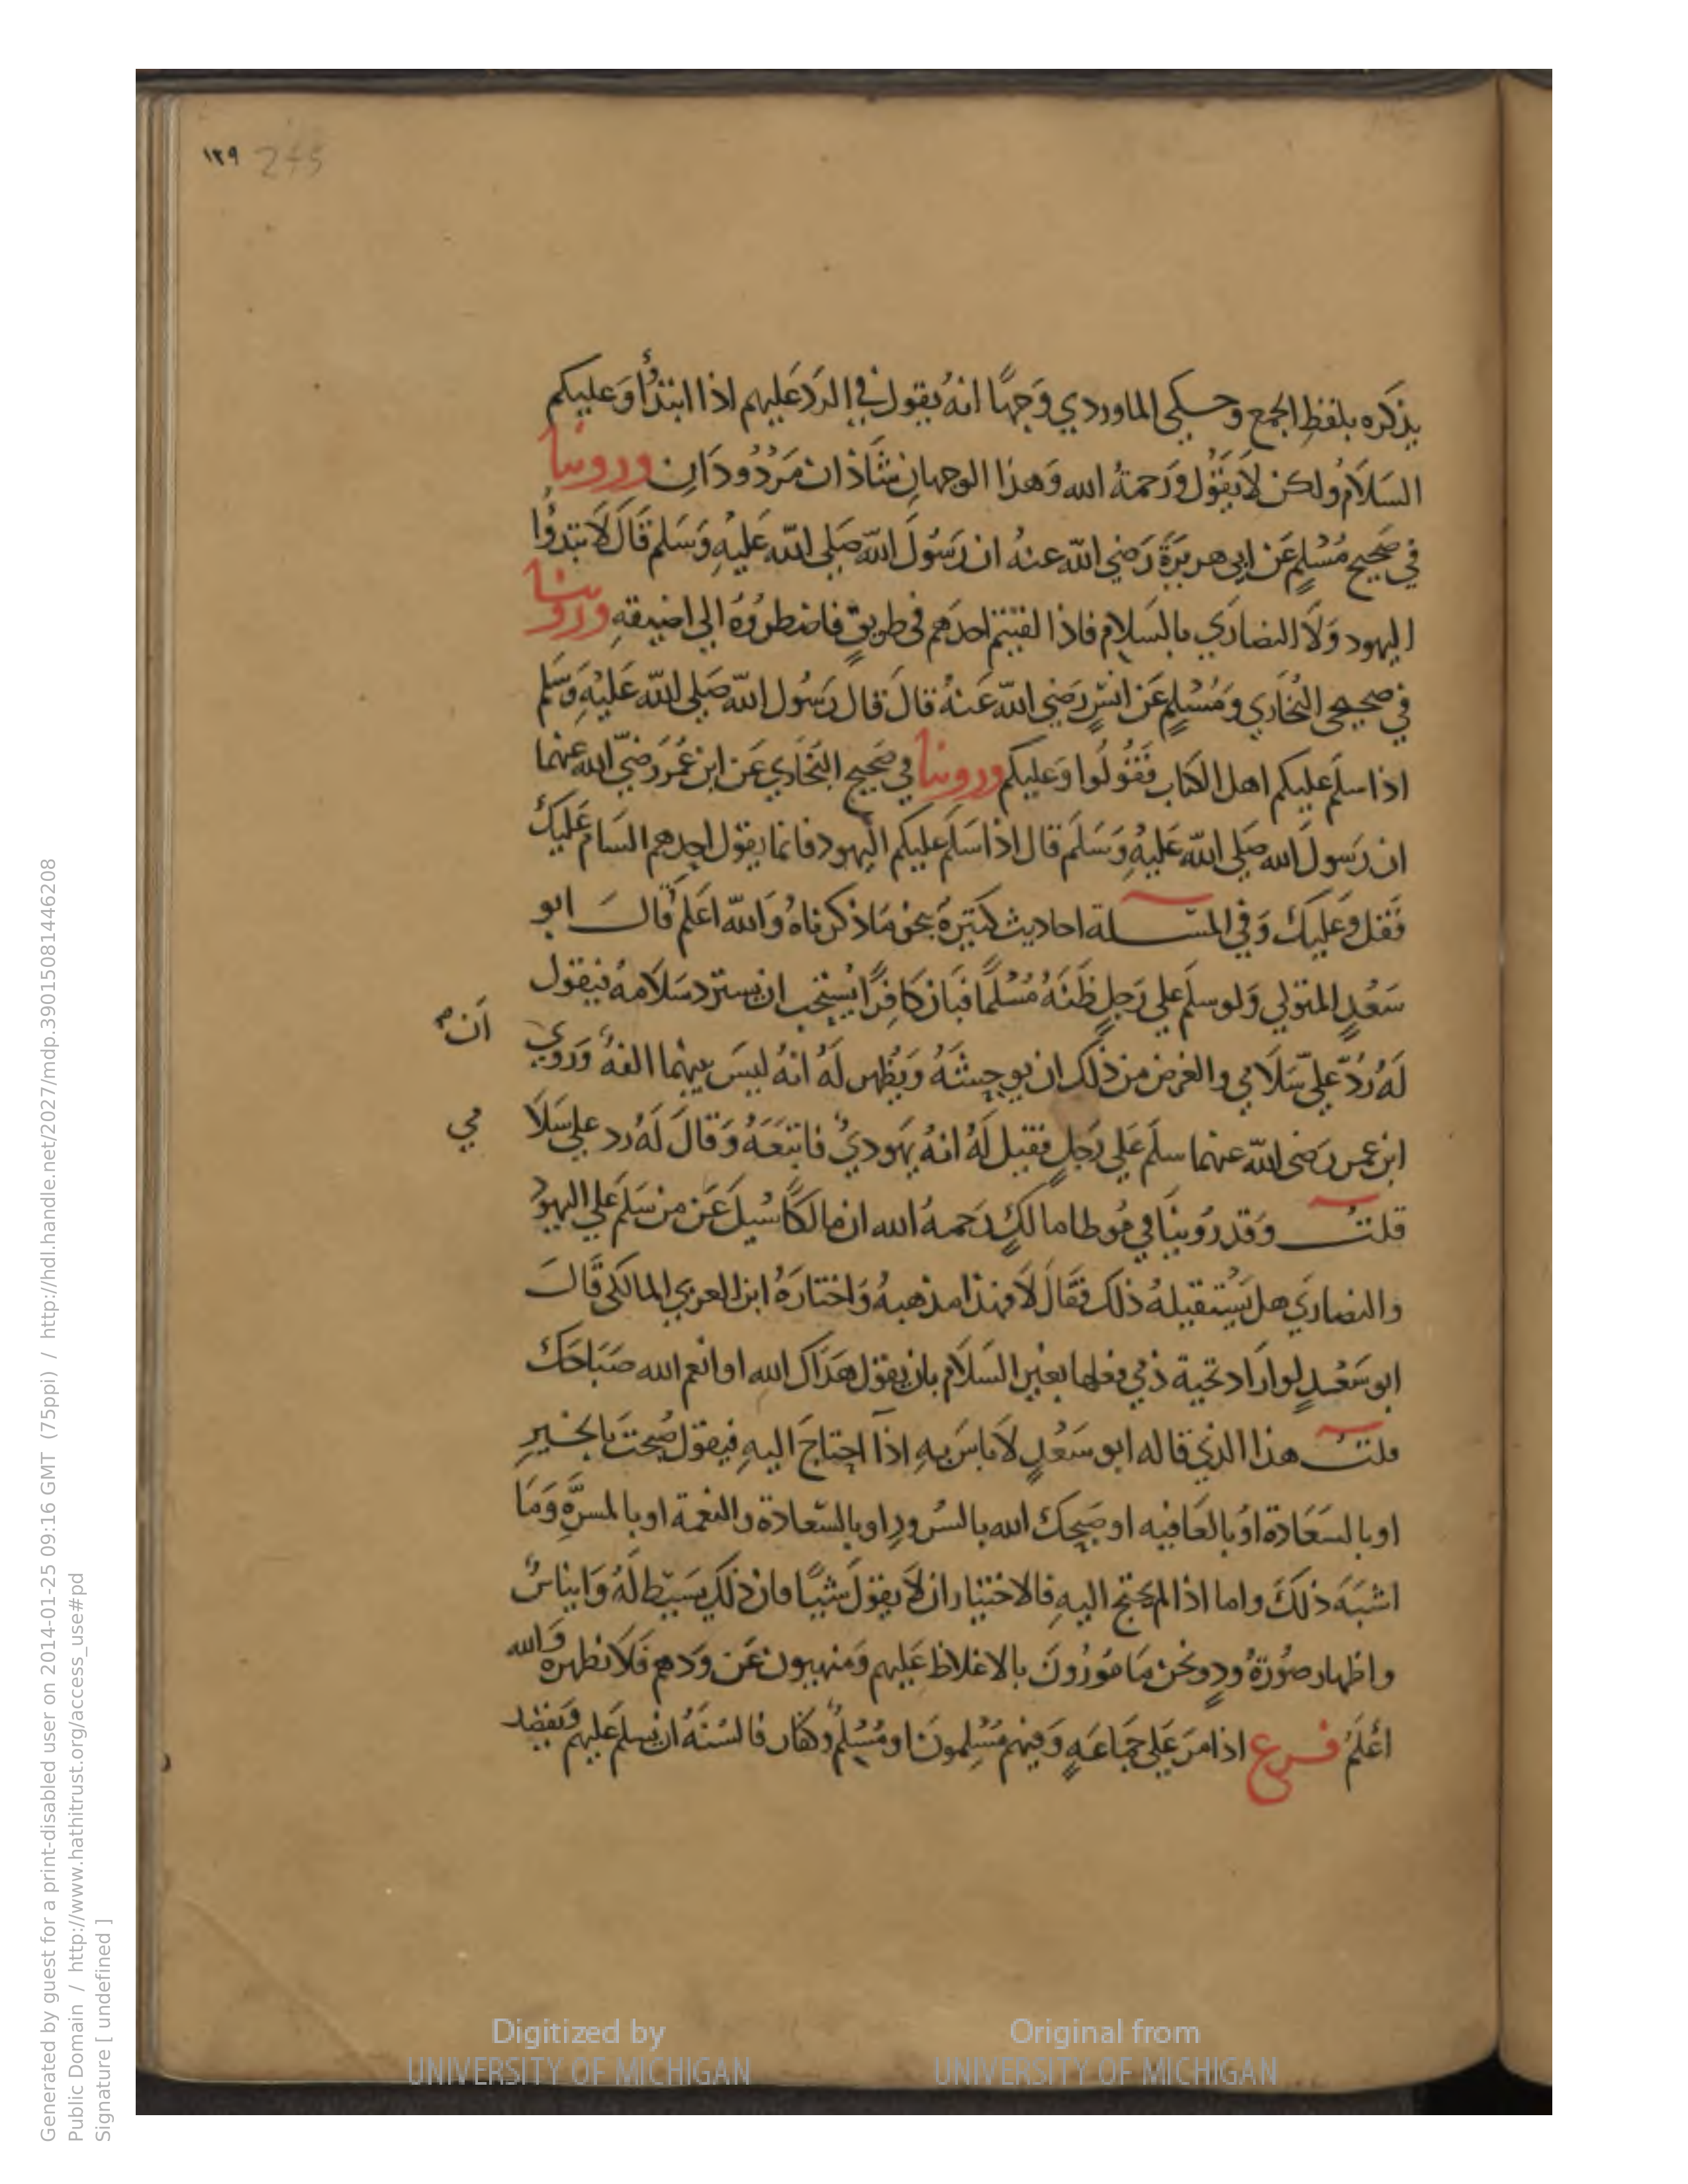 ١٢٩ 245
يذكره بلفظ الجمع وحكى الماوردي وَجهًا انهُ يقول في الردّ عليهم اذا ابتدُأوا وَعليكم
السَلامُ ولكن لا يَقُول وَرَحمةُ الله وَهذا الوجهانِ شاذان مَرْدُودَانِ وروينا
في صَحيح مُسْلمٍ عَن ابي هريرَةَ رَضي الله عنهُ ان رَسُولَ الله صَلى الله عَليْهِ وَسَلم قَالَ لا تبتدُوا
اليهود وَلا النصَارَي بالسَلام فاذا لقيتم احدَهم في طريقٍ فاضطرُوُه الي اضيقهِ وروينا
في صحيحي البُخَاري وَمُسْلمٍ عَن انسٍ رَضي الله عَنهُ قالَ قال رَسُول الله صَلى الله عَليْهِ وَسَلم
اذا سلمَ عليكم اهل الكتاب فَقُولُوا وَعليكم وروينا في صَحيح البخَاري عَن ابن عُمَرَ رَضيَ الله عنهما
ان رَسولَ الله صَلى الله عَليهِ وَسَلَم قال اذا سَلمَ عليكم اليهود فانما يقول احدهم السَام عَليكَ
فَقل وَعَليك وَفي المسـلة احاديث كثيرة بنحو مَا ذكرناهُ وَالله اَعلم قال ابو
سَعْدٍ المتولي وَلو سلمَ علي رَجلٍ ظَنهُ مُسْلمًا فبَان كافِرًا يُستحب ان يسترد سَلامهُ فيقول
لهُ رُدَّ عليّ سَلامي والغرض من ذلك ان يوحشهُ وَيُظهر لَهُ انهُ ليسَ بينهما الفهٌ وَرَوي
اَن
ابن عمر رَضي الله عنهما سلمَ عَلي رَجلٍ فقيل لهُ انهُ يَهَوديٌ فاتبَعَهُ وَقالَ لَهُ رد علي سَلاَ
مي
قلت وَقد رُوينَا في مُوطا مالكٍ رَحمهُ الله ان مالكًا سُيلَ عَن من سَلمَ علي اليهود
والنصاريَ هل يَستقيلهُ ذلك فقَال لا فهذا مذهبهُ وَاختارَهُ ابن العربي المالكي قَالَ
ابو سَعْدٍ لو ارَاد تحية ذمي فعلها بغير السَلام بان يقول هَدَاك الله او انعم الله صَبَاحَك
قلت هذا الذي قاله ابو سَعْدٍ لا باسَ بهِ اذا احتاجَ اليهِ فيقول صُبحتَ بالخيرِ
او بالسَعَادة اوْ بالعَافيه او صَبحك الله بالسُرورِ او بالسَعادة والنعمة او بالمسرَّةِ وَمَا
اشبَهَ ذلكَ واما اذا لم يحتج اليهِ فالاختيار ان لا يقول شيًا فان ذلك بَسيط لهُ وَايناسٌ
واظهار صُورَةُ ودٍ ونحن مَامُورُونَ بالاغلاظ عَليهم وَمنهيون عَن ودهم فَلا نظهره وَالله
اَعْلَمُ فـرع اذا مرَ عَلي جَمَاعَهٍ وَفيهم مُسْلِمونَ او مُسْلمٌ وكفار فالسُنهُ ان يسلم عَليهم وَيقصد
Digitized by
UNIVERSITY OF MICHIGAN
Original from
UNIVERSITY OF MICHIGAN
Generated by guest for a print-disabled user on 2014-01-25 09:16 GMT (75ppi) / http://hdl.handle.net/2027/mdp.39015081446208
Public Domain / http://www.hathitrust.org/access_use#pd
Signature [ undefined ]